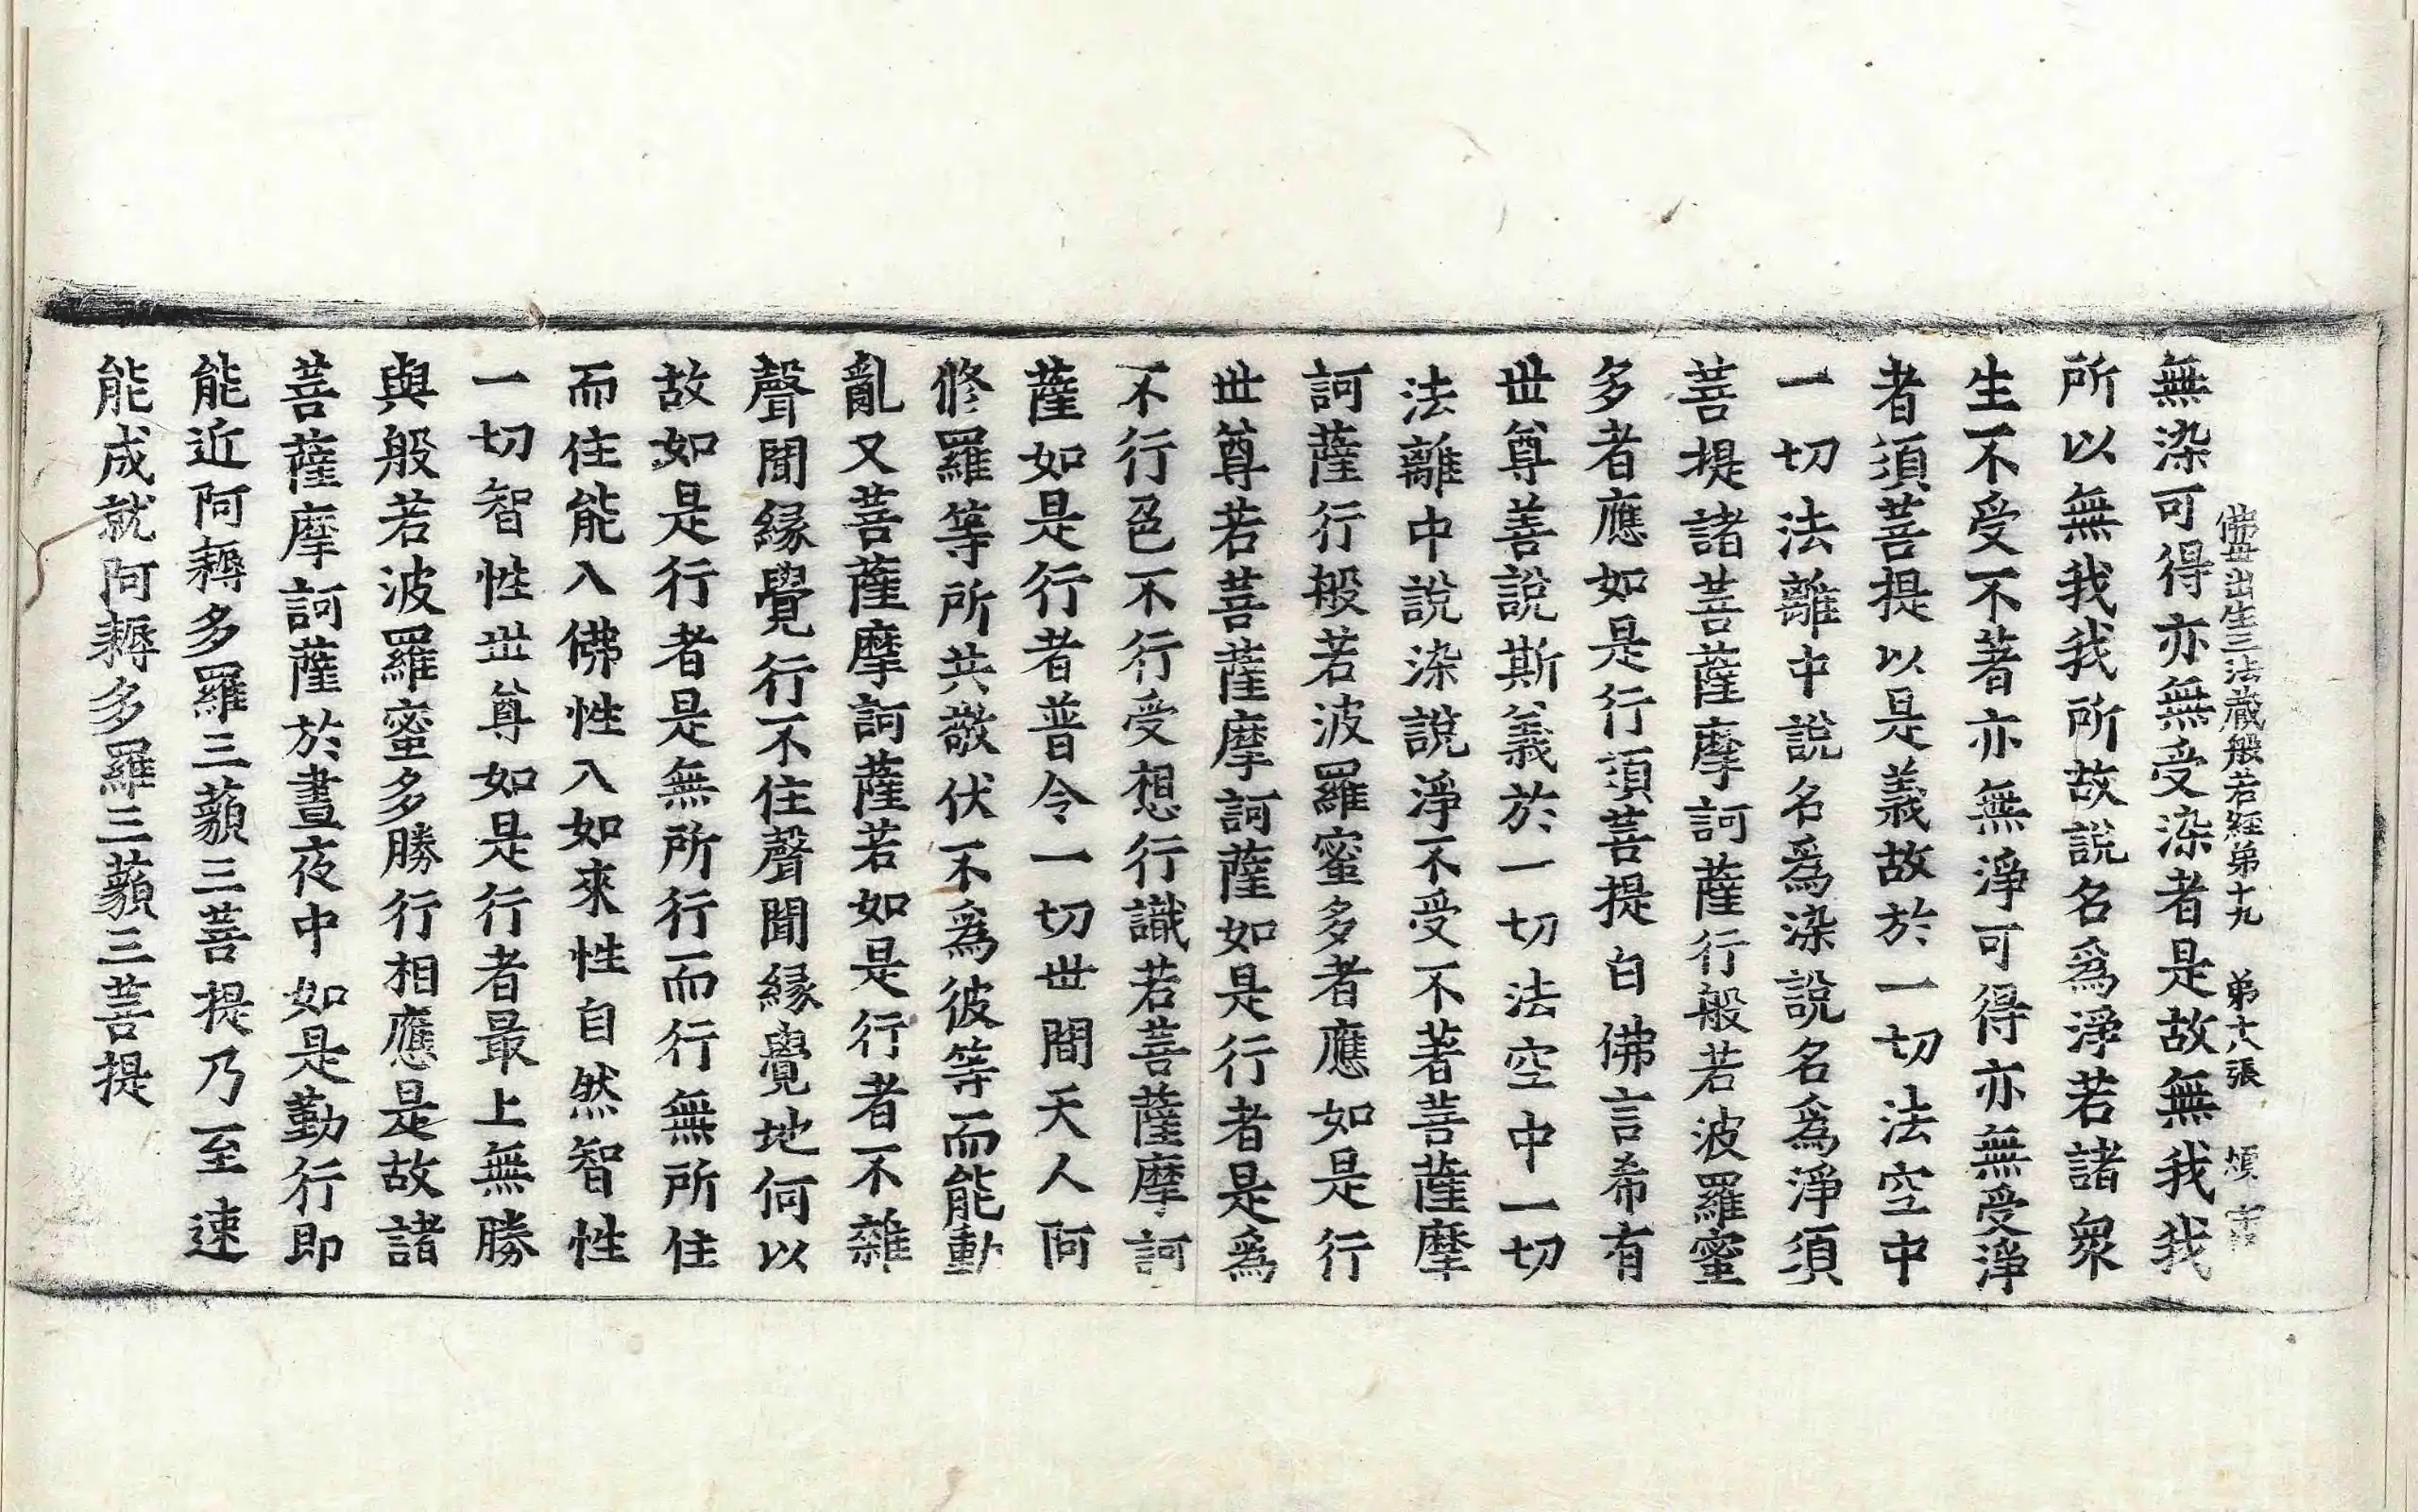 佛母出生三法藏般若經第十九 第十六張
無染可得亦無受染者是故無我我
所以無我我所故說名爲淨若諸衆
生不受不著亦無淨可得亦無受淨
者須菩提以是義故於一切法空中
一切法離中說名爲染說名爲淨須
菩提諸菩薩摩訶薩行般若波羅蜜
多者應如是行須菩提白佛言希有
世尊善說斯義於一切法空中一切
法離中說染說淨不受不著菩薩摩
訶薩行般若波羅蜜多者應如是行
世尊若菩薩摩訶薩如是行者是爲
不行色不行受想行識若菩薩摩訶
薩如是行者普令一切世間天人阿
修羅等所共敬伏不爲彼等而能動
亂又菩薩摩訶薩若如是行者不雜
聲聞緣覺行不住聲聞緣覺地何以
故如是行者是無所行而行無所住
而住能入佛性入如來性自然智性
一切智性世尊如是行者最上無勝
與般若波羅蜜多勝行相應是故諸
菩薩摩訶薩於晝夜中如是勤行即
能近阿耨多羅三藐三菩提乃至速
能成就阿耨多羅三藐三菩提